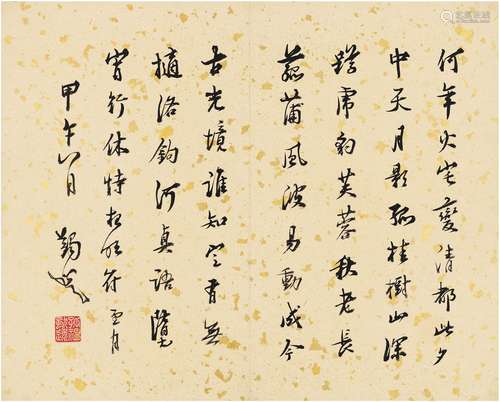 何年火宅變清都此夕
中天月影孤桂樹山深
蹲虎豹芙蓉秋老長
菰蒲風波易動成今
古光境誰知定有無
摘洛鉤河真語
宵行休恃符月
甲午八月